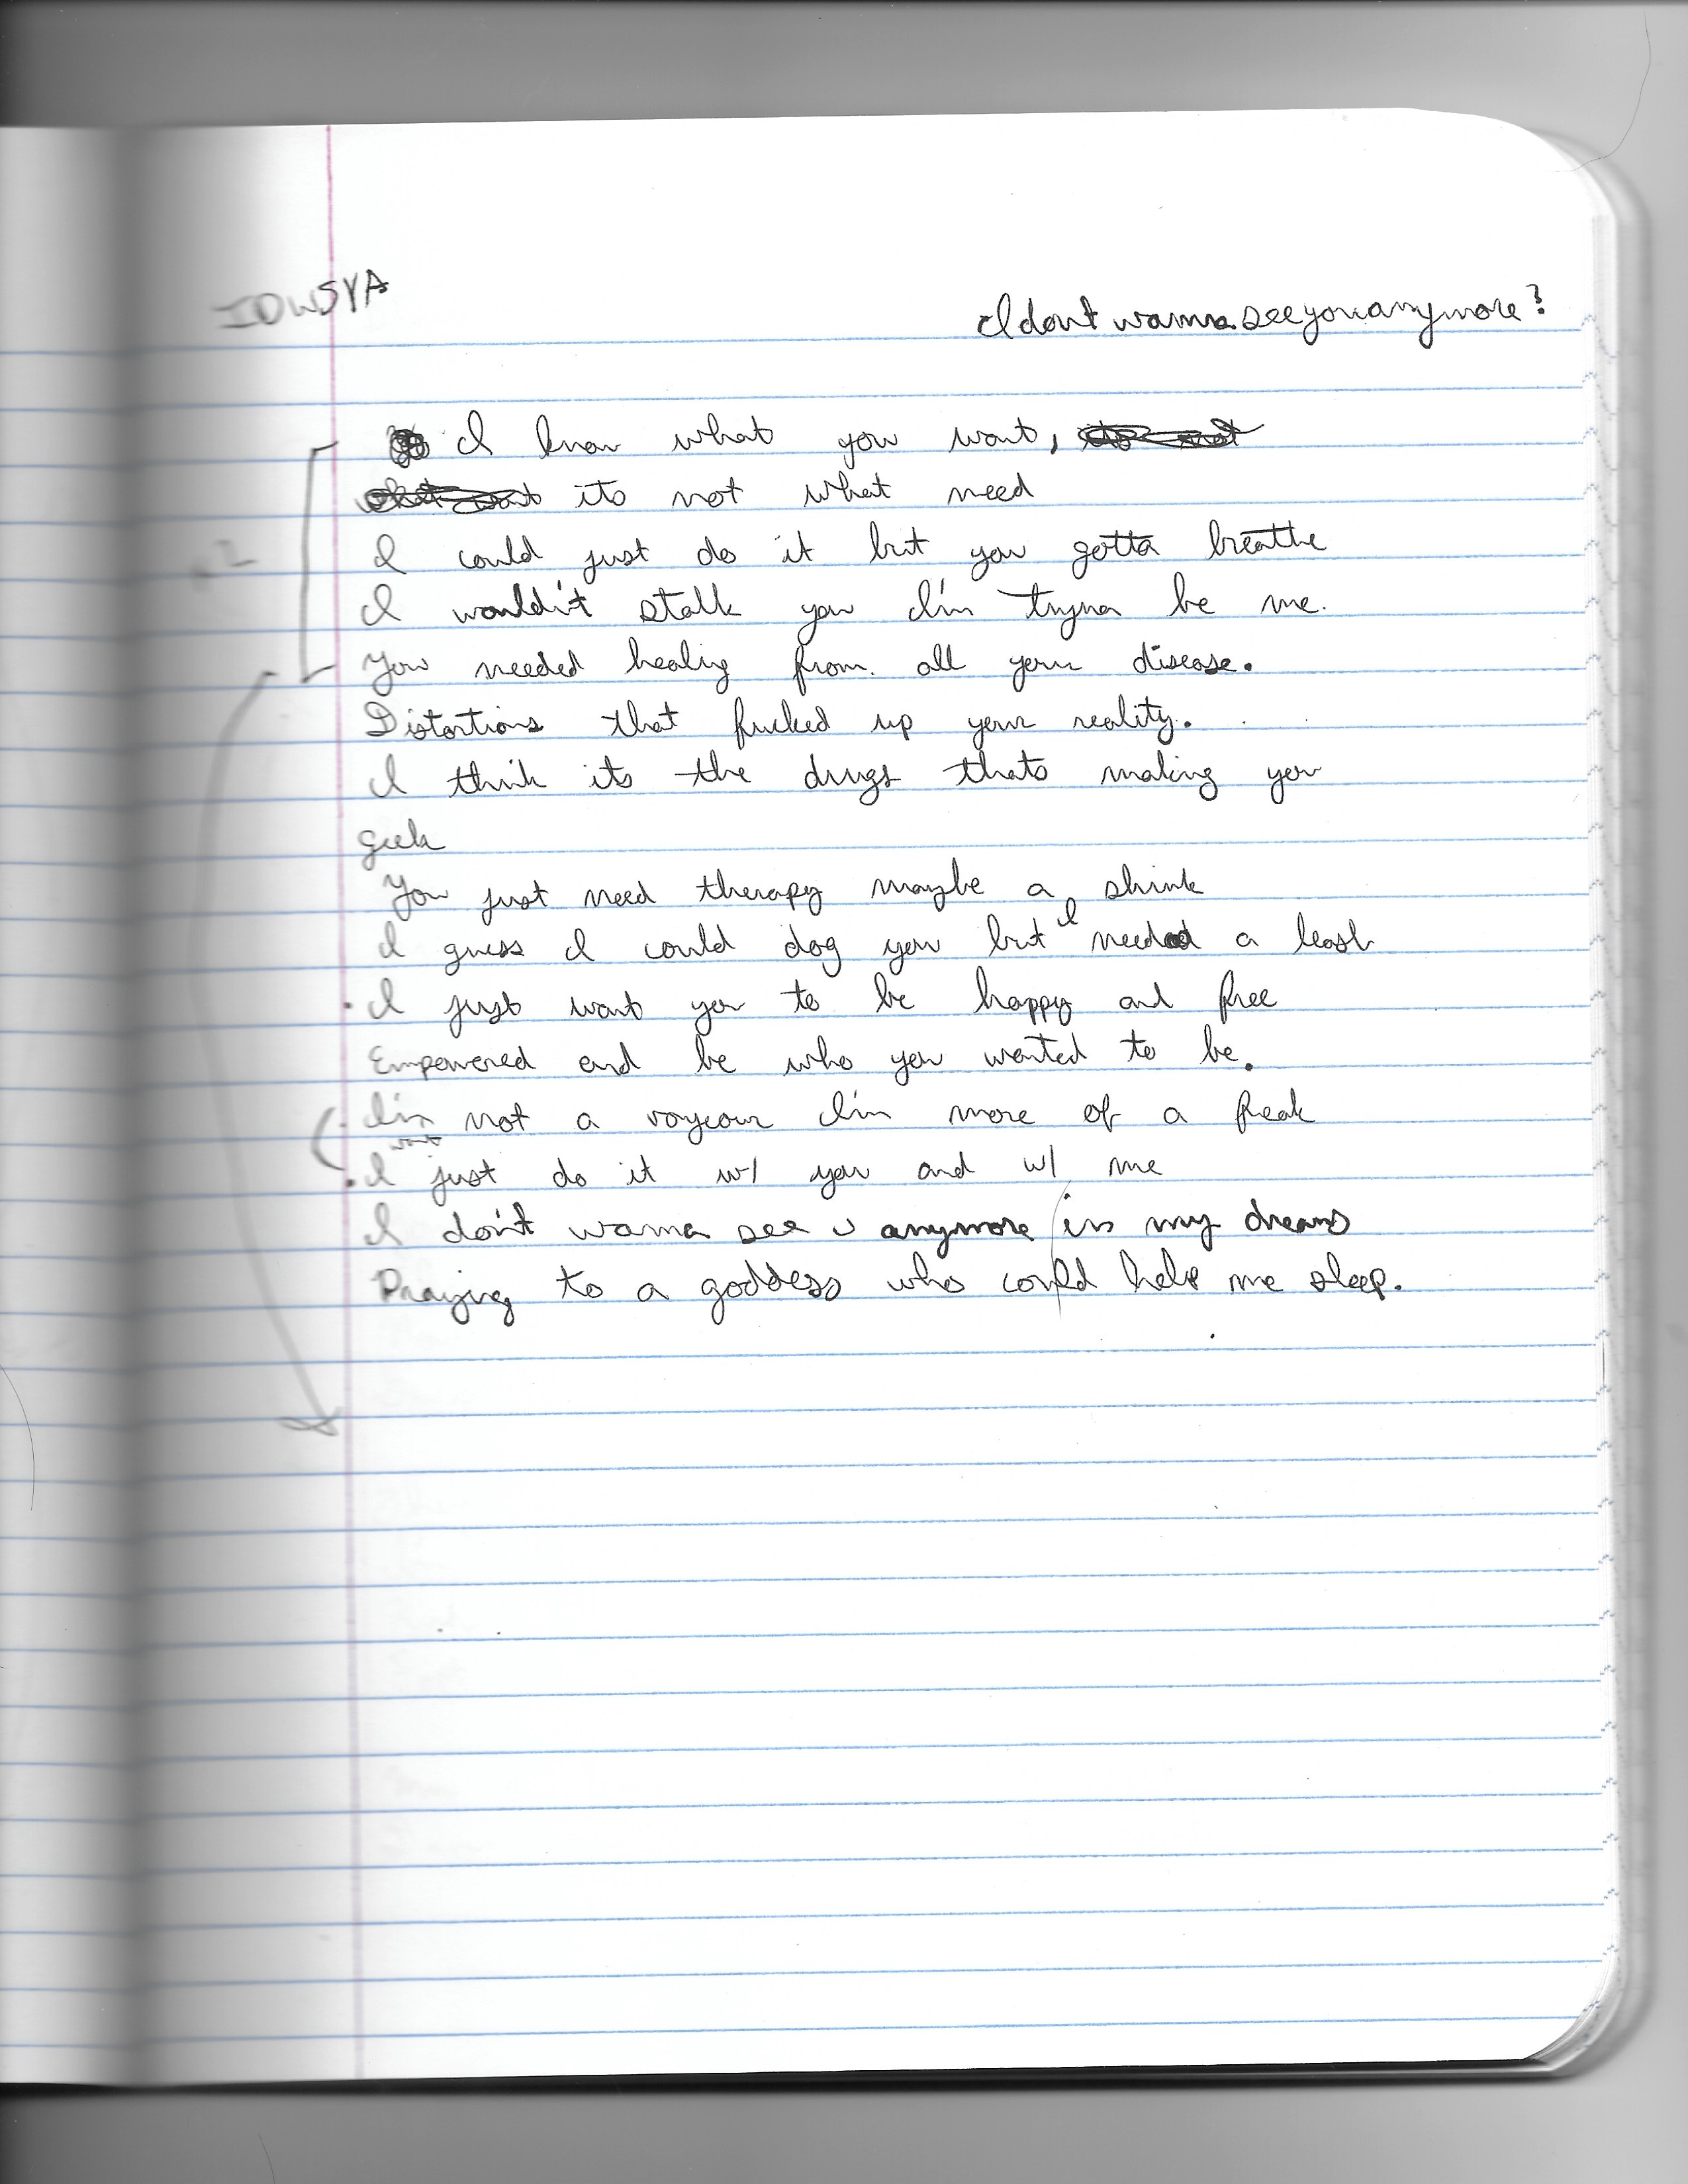 IDWSYA
I dont wanna see you anymore?
I know what you want,
its not what need
I could just do it but you gotta breathe
I wouldn't stalk you I'm tryna be me.
You needed healing from all your disease.
Distortions that fucked up your reality.
I think its the drugs thats making you
geek
You just need therapy maybe a shrink
I guess I could dog you but I need a leash
I just want you to be happy and free
Empowered and be who you wanted to be.
I'm not a voyeur I'm more of a freak
I want just do it w/ you and w/ me
I don't wanna see u anymore in my dreams
Praying to a goddess who could help me sleep.